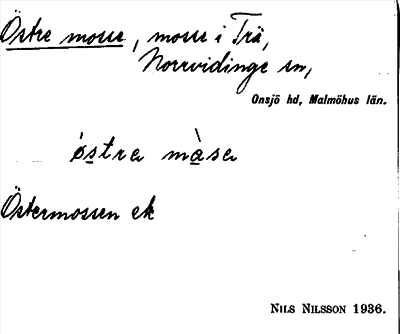 Östre mosse, mosse i Trä,
Norrvidinge sn,
Onsjö hd, Malmöhus län.
östra màsa
Östermossen ek
NILS NILSSON 1936.